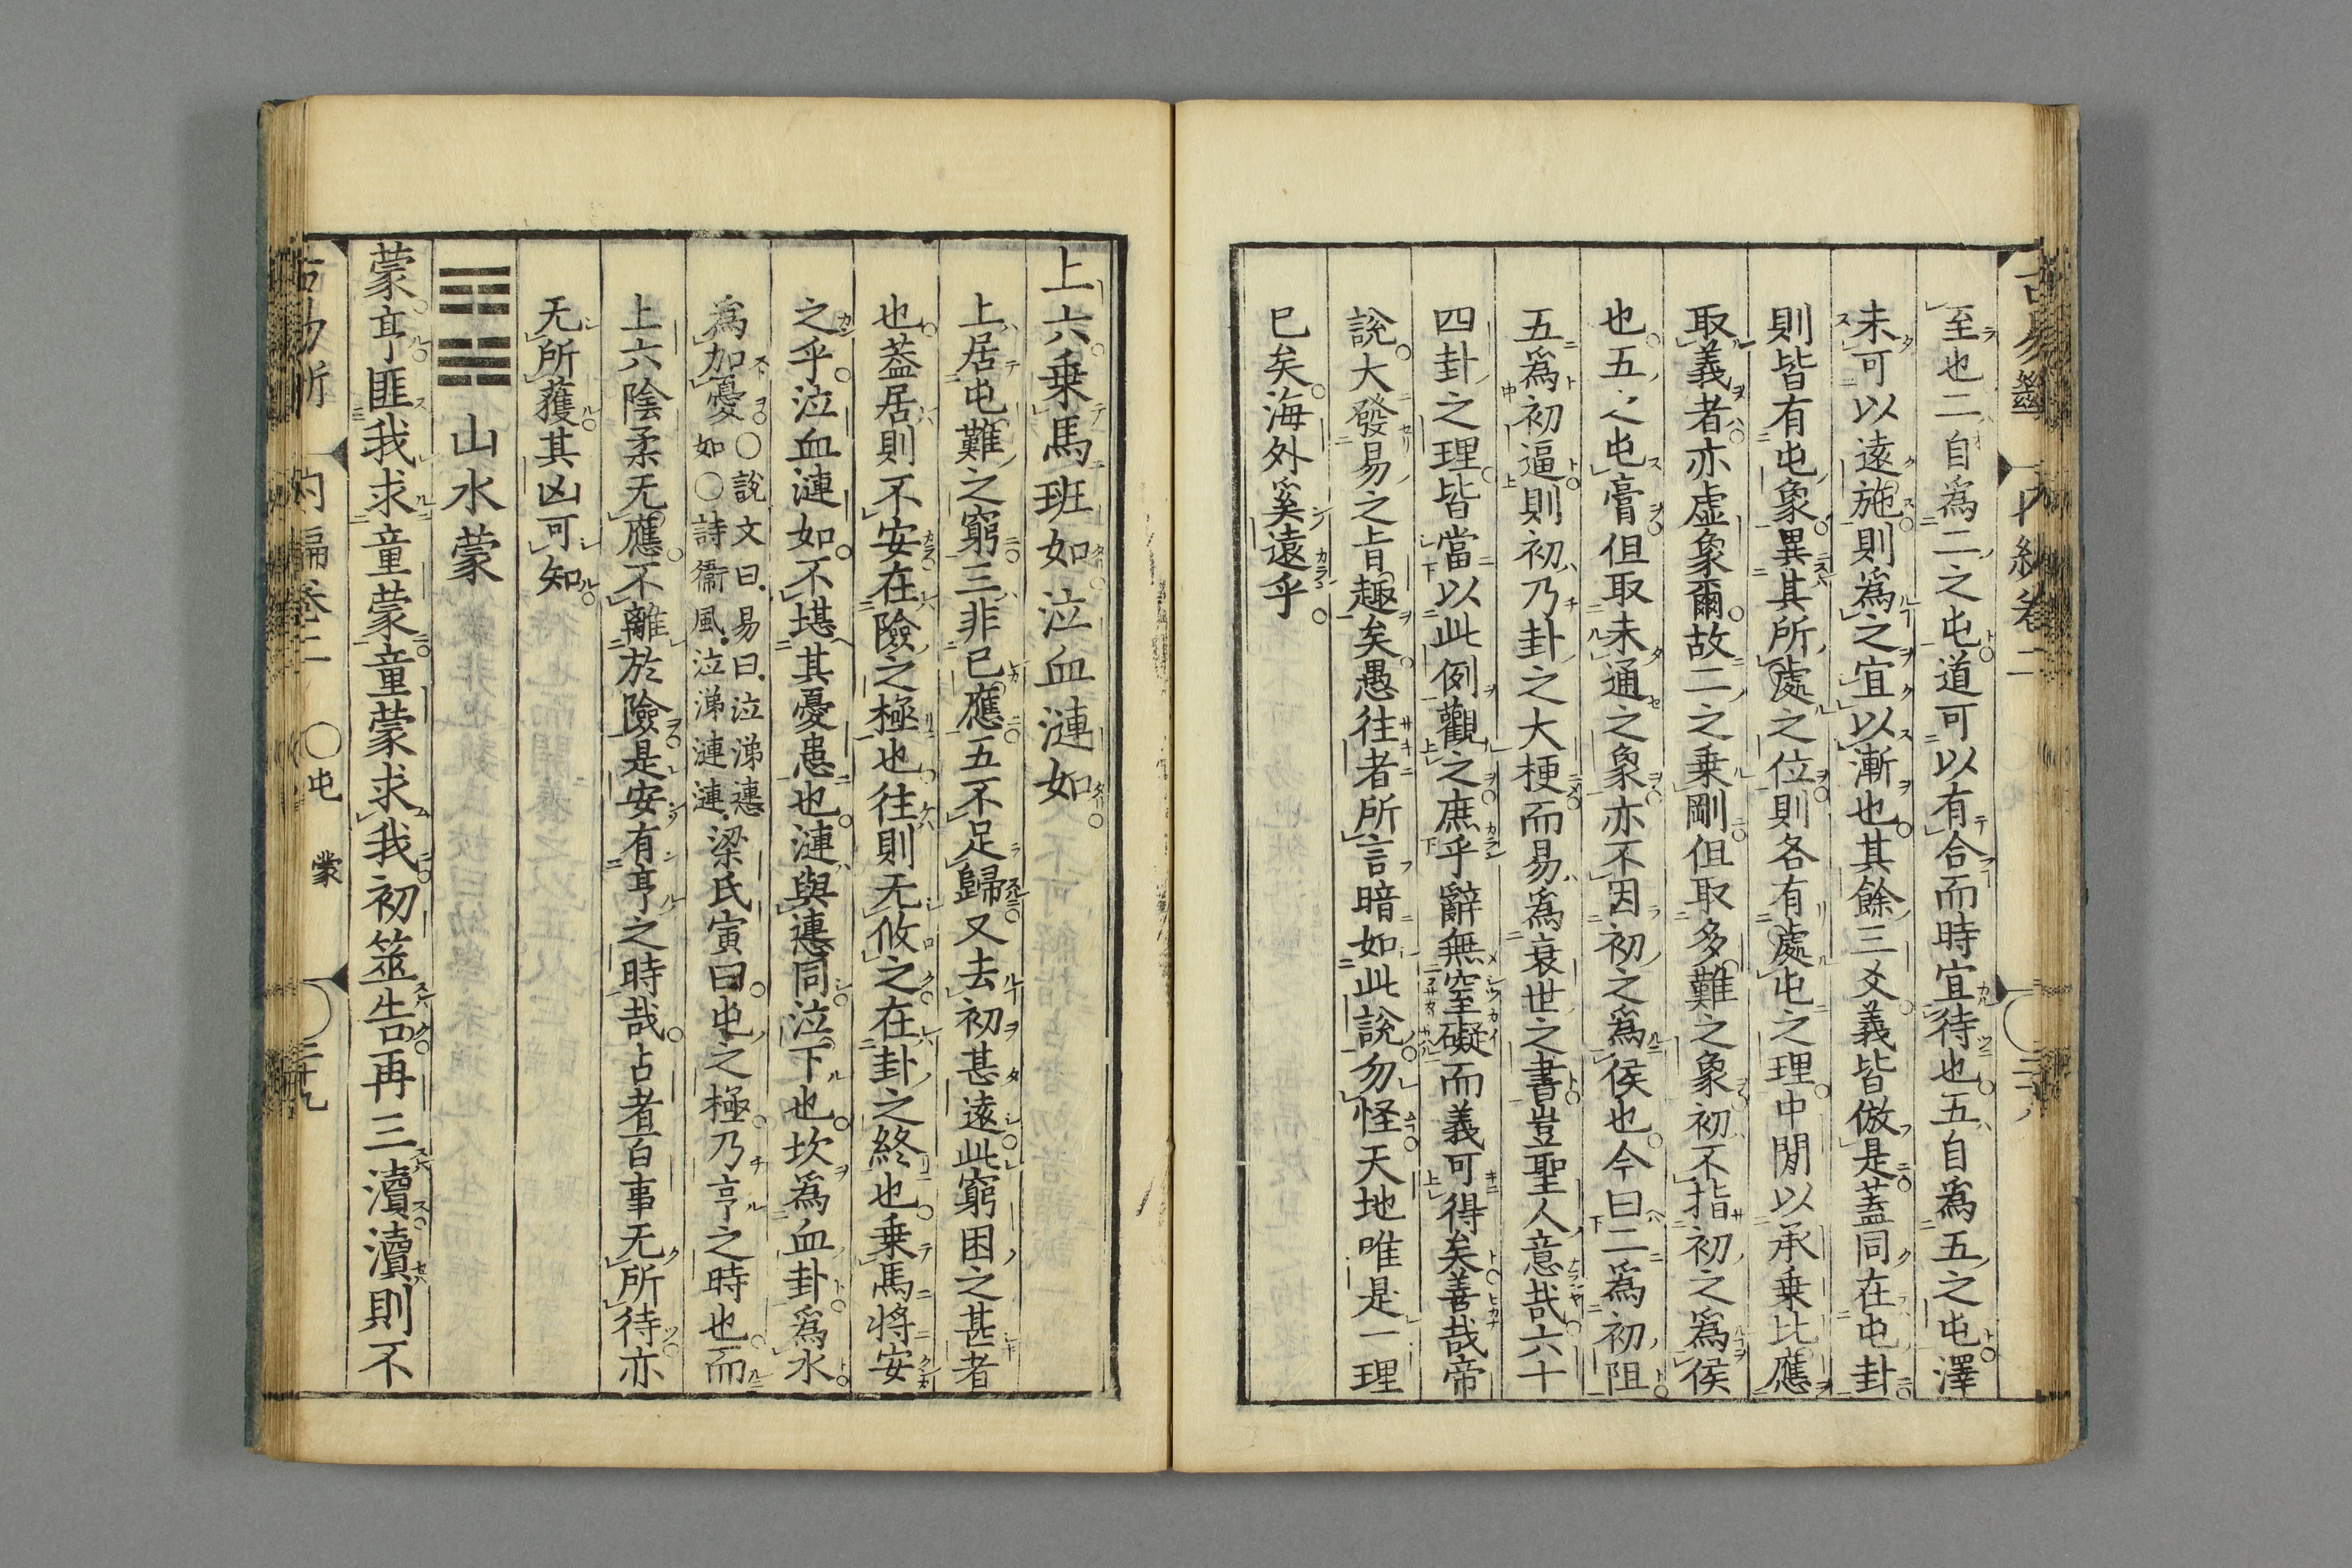 至也二自爲二之屯道可以有合而時宜待也五自爲五之屯澤
未可以遠施則爲之宜以漸也其餘三爻義皆倣是蓋同在屯卦
則皆有屯象異其所處之位則各有處屯之理中間以承乗比應
取義者亦虚象爾故二之乗剛但取多難之象初不指初之爲侯
也五之屯膏但取未通之象亦不因初之爲侯也今曰二爲初阻
五爲初逼則初乃卦之大梗而易爲衰世之書豈聖人意哉六十
四卦之理皆當以此例觀之庶乎辭無窒礙而義可得矣善哉帝
說大發易之旨趣矣愚往者所言暗如此說勿怪天地唯是一理
已矣海外奚遠乎
上六乗馬班如泣血漣如
上居屯難之窮三非已應五不足歸又去初甚遠此窮困之甚者
也蓋居則不安在險之極也往則无攸之在卦之終也乗馬將安
之乎泣血漣如不堪其憂患也漣與㦁同泣下也坎爲血卦爲水
爲加憂○說文曰易曰泣涕㦁
如○詩衞風泣涕漣漣梁氏寅曰屯之極乃亨之時也而
上六陰柔无應不離於險是安有亨之時哉占者百事无所待亦
无所獲其凶可知
山水蒙
蒙亨匪我求童蒙童蒙求我初筮告再三瀆瀆則不
内編卷二 ○屯 蒙 二十九